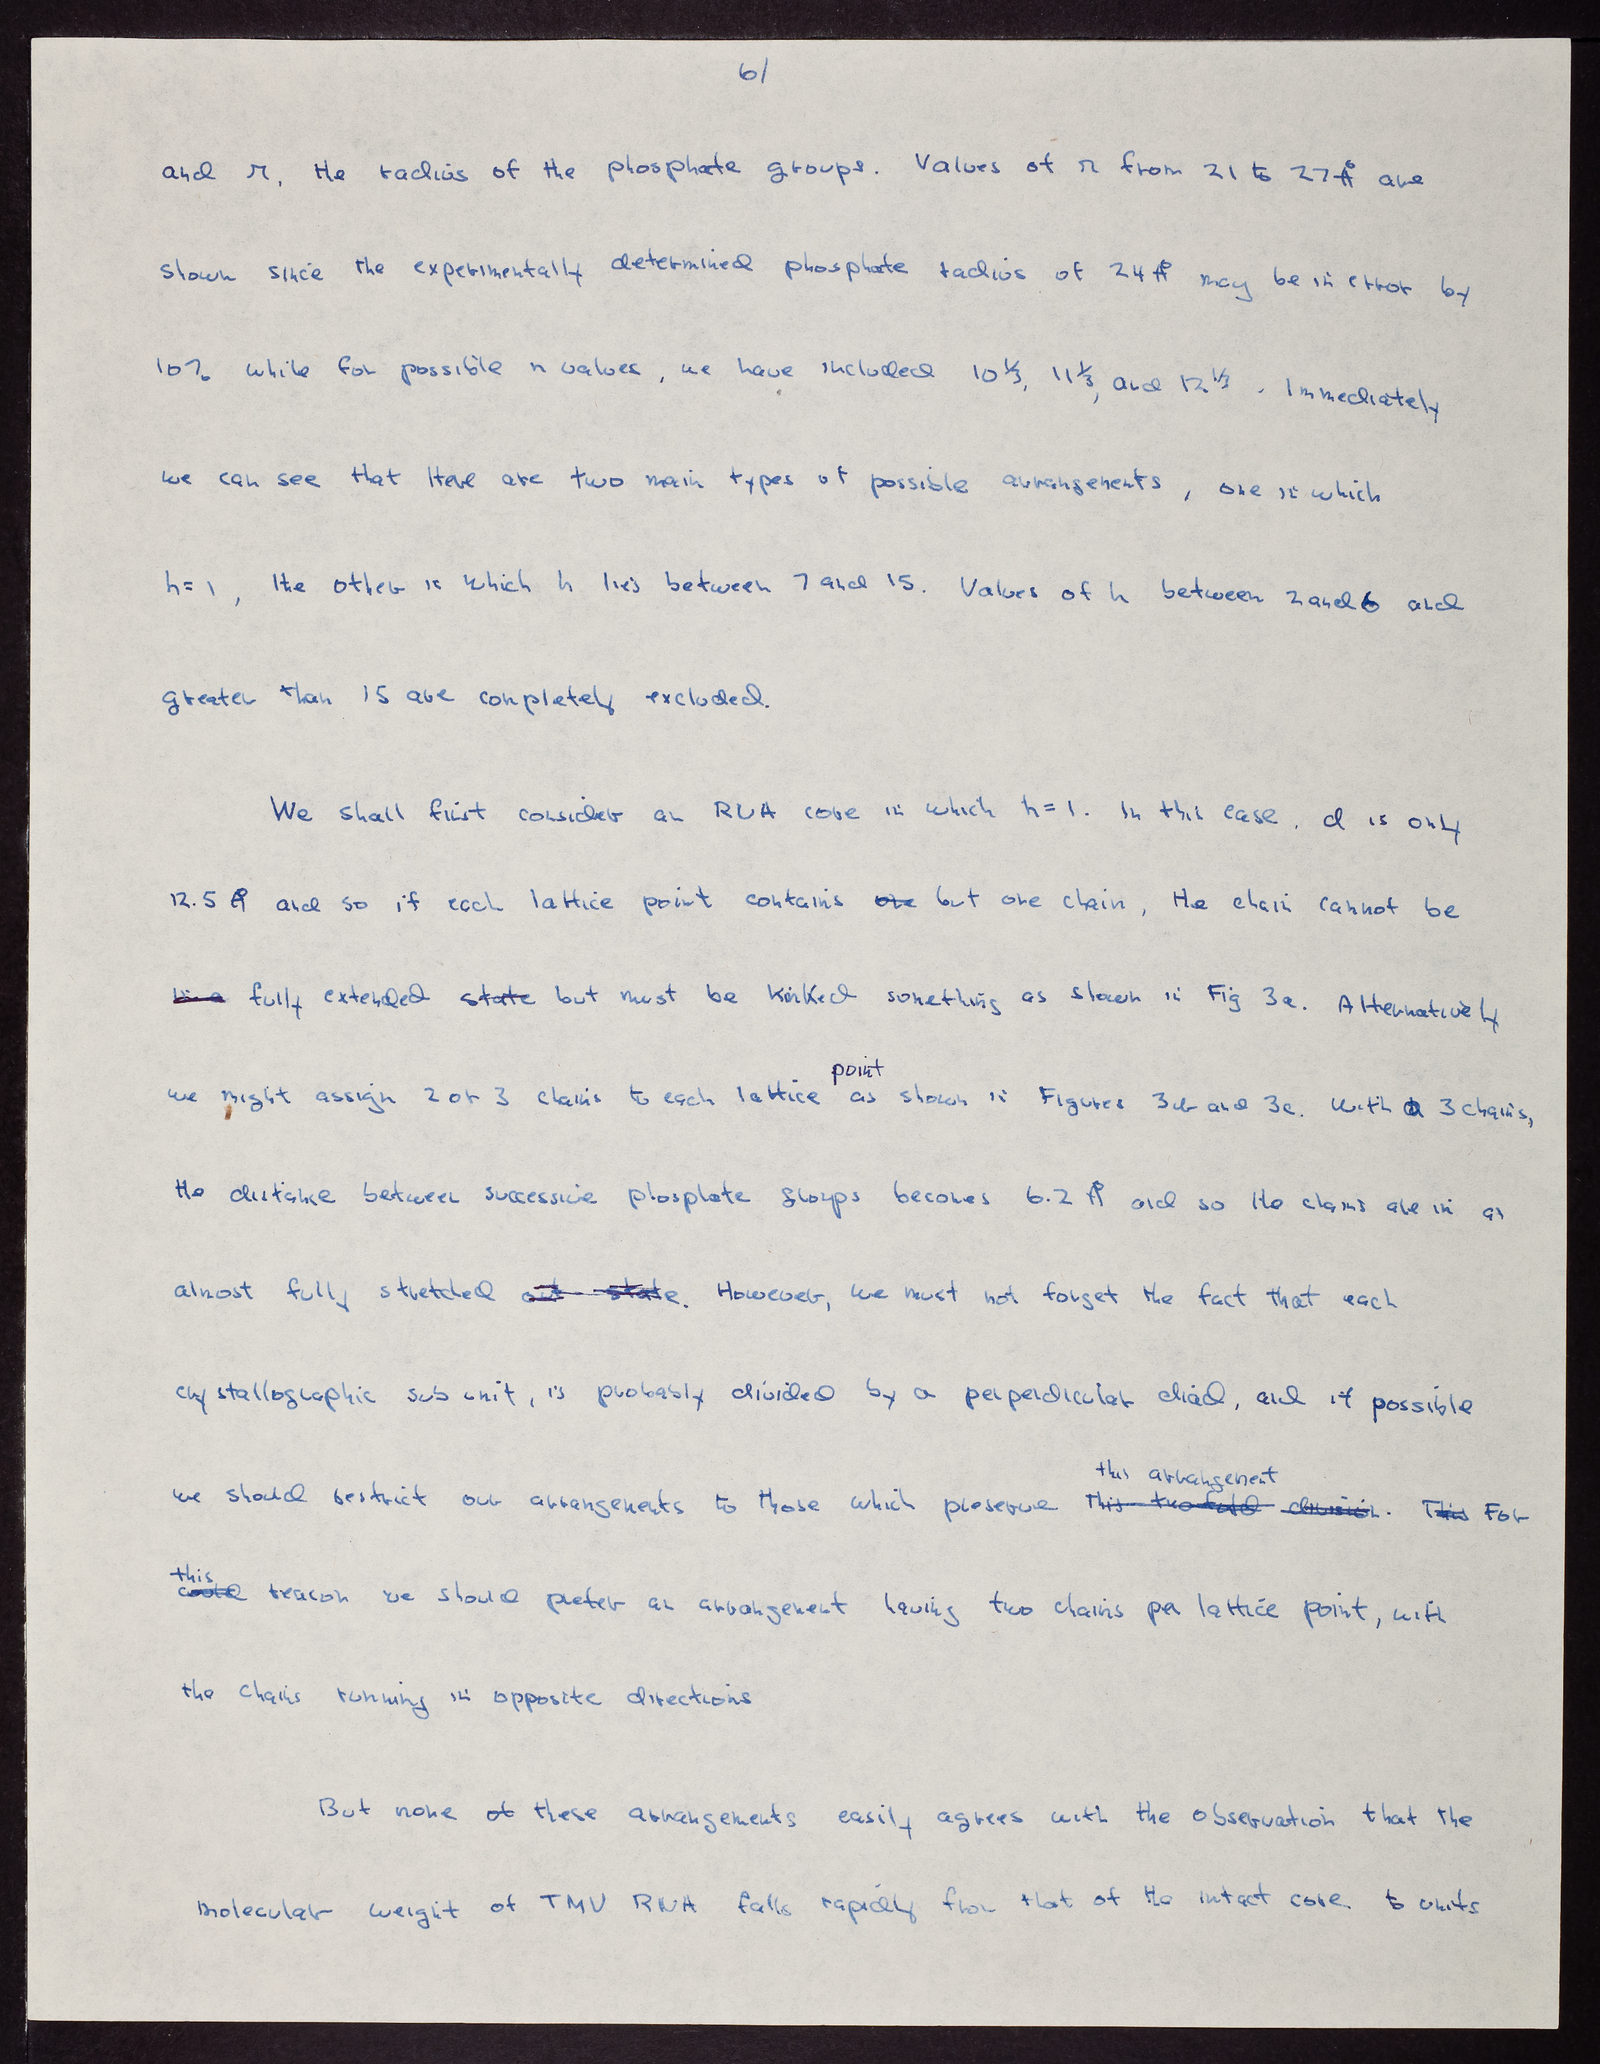 6/
and r, the radius of the phosphate groups. Values of r from 21 to 27 Å are
shown since the experimentally determined phosphate radius of 24 Å may be in error by
10% while for possible n values, we have included 10 1/3, 11 1/3, and 12 1/3. Immediately
we can see that there are two main types of possible arrangements, one in which
h=1, the other in which h lies between 7 and 15. Values of h between 2 and 6 and
greater than 15 are completely excluded.
We shall first consider an RNA core in which h=1. In this case, d is only
12.5 Å and so if each lattice point contains one but one chain, the chain cannot be
in a fully extended state but must be kinked something as shown in Fig 3a. Alternatively
point
we might assign 2 or 3 chains to each lattice as shown in Figures 3b and 3c. With 3 chains,
the distance between successive phosphate groups becomes 6.2 Å and so the chains are in an
almost fully stretched out state. However, we must not forget the fact that each
crystallographic sub unit, is probably divided by a perpendicular diad, and if possible
this arrangement
we should restrict our arrangements to those which preserve this two fold division. This For
this
could reason we should prefer an arrangement having two chains per lattice point, with
the chains running in opposite directions
But none of these arrangements easily agrees with the observation that the
molecular weight of TMV RNA falls rapidly from that of the intact core to units